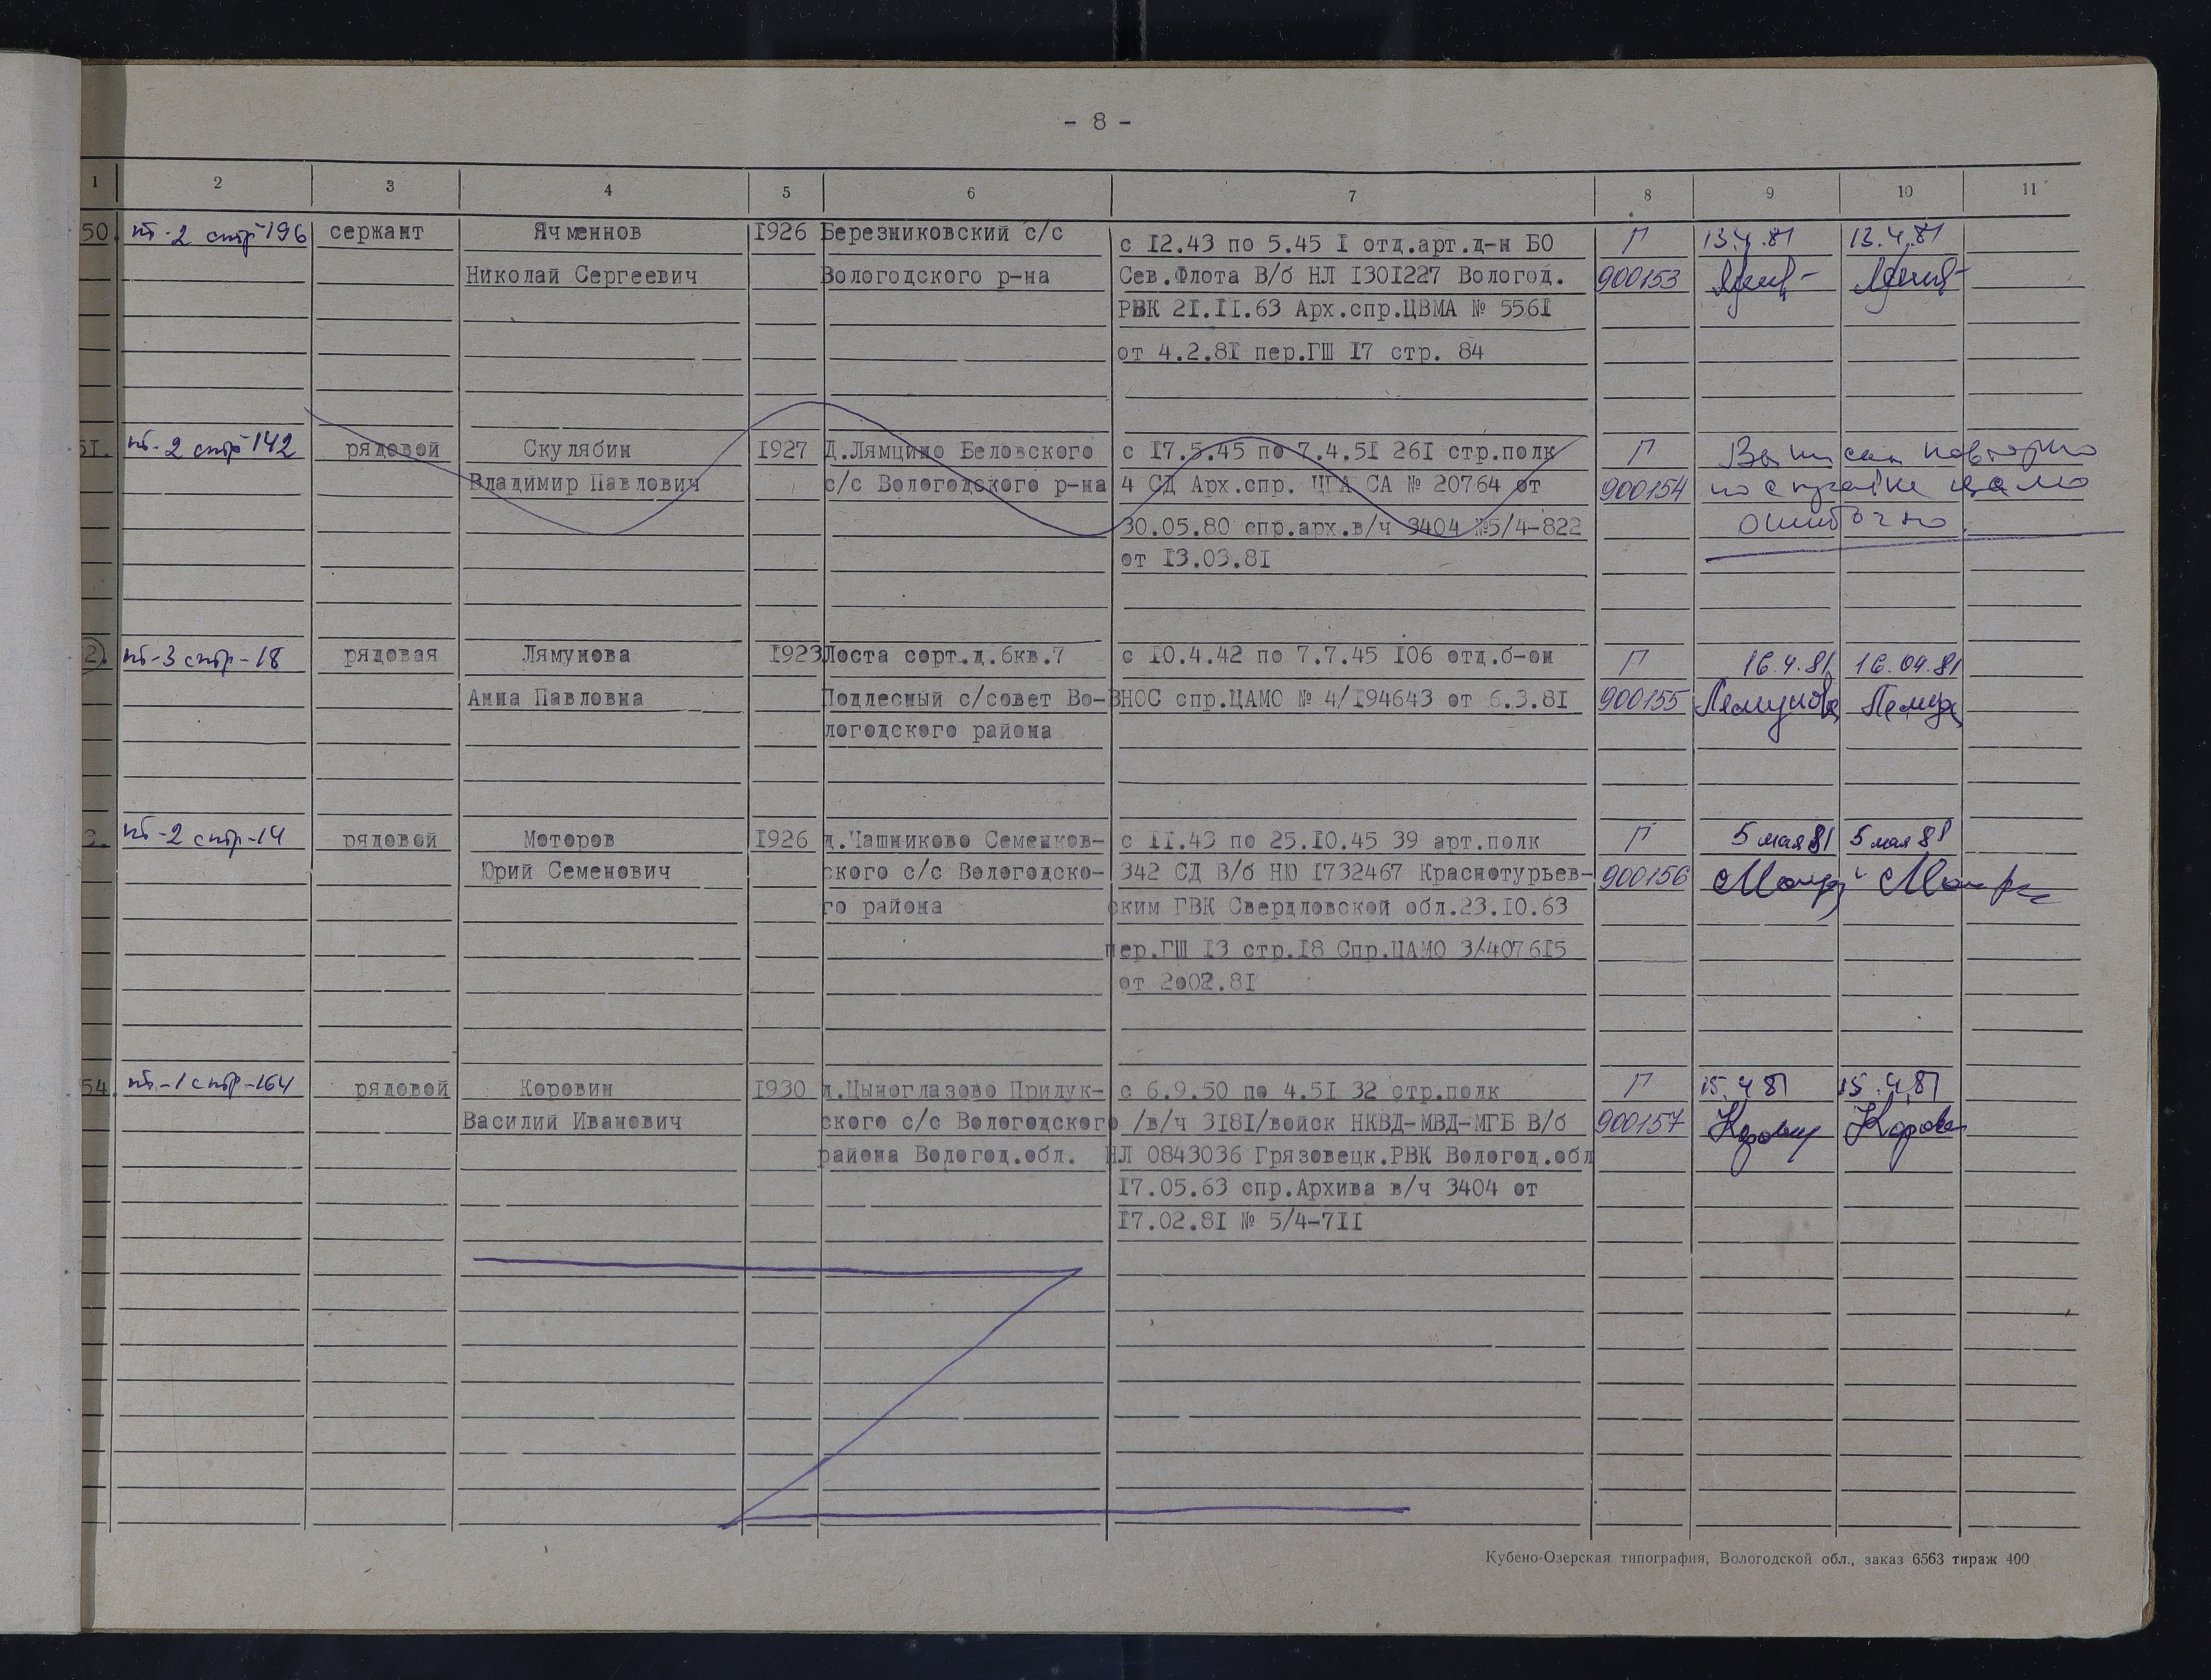 - 8 -
1 2 3 4 5 6 7 8 9 10 11
50. кт-2 стр-196 сержант Ячменнов 1926 Березниковский с/с с 12.43 по 5.45 I отд.арт.д-н БО Г 13.4.81 13.4.81
Николай Сергеевич Вологодского р-на Сев.Флота В/б НЛ 1301227 Вологод. 900153
РВК 21.11.63 Арх.спр.ЦВМА № 5561
от 4.2.81 пер.ГШ 17 стр. 84
51. кт-2 стр-142 рядовой Скулябин 1927 Д.Лямцино Беловского с 17.5.45 по 7.4.51 261 стр.полк Г Выписан повторно
Владимир Павлович с/с Вологодского р-на 4 СД Арх.спр. ЦГА СА № 20764 от 900154 по справке
30.05.80 спр.арх.в/ч 3404 №5/4-822 ошибочно.
от 13.03.81
2). кт-3 стр-18 рядовая Лямунова 1923 Лоста сорт.д.6кв.7 с 10.4.42 по 7.7.45 106 отд.б-он Г 16.4.81 16.04.81
Анна Павловна Подлесный с/совет Во- ВНОС спр.ЦАМО № 4/194643 от 6.3.81 900155 Лямунова Лямун
логодского района
3. кт-2 стр-14 рядовой Моторов 1926 д.Чашниково Семенков- с 11.43 по 25.10.45 39 арт.полк Г 5 мая 81 5 мая 81
Юрий Семенович ского с/с Вологодско- 342 СД В/б НЮ 1732467 Краснотурьев- 900156
го района ским ГВК Свердловской обл.23.10.63
пер.ГШ 13 стр.18 Спр.ЦАМО 3/407615
от 2002.81
54. кт-1 стр-164 рядовой Коровин 1930 д.Цыноглазово Прилук- с 6.9.50 по 4.51 32 стр.полк Г 15.4.81 15.4.81
Василий Иванович ского с/с Вологодского /в/ч 3181/войск НКВД-МВД-МГБ В/б 900157
района Вологод.обл. НЛ 0843036 Грязовецк.РВК Вологод.обл
17.05.63 спр.Архива в/ч 3404 от
17.02.81 № 5/4-711
Кубено-Озерская типография, Вологодской обл., заказ 6563 тираж 400